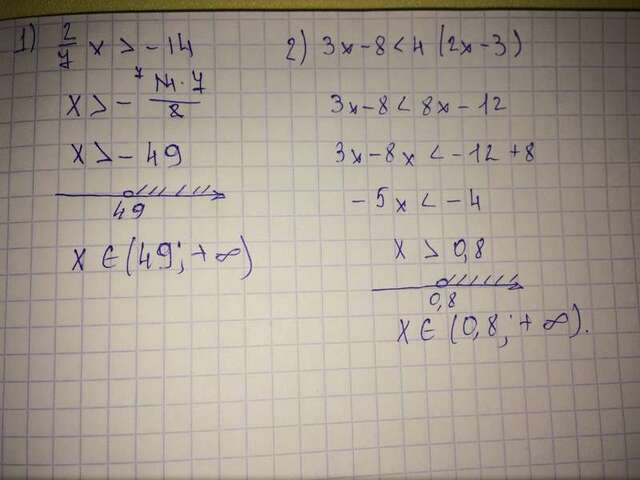 1) 2/7 x > -14
x > - 14·7/2
x > - 49
49
x ∈ (49; +∞)
2) 3x-8<4(2x-3)
3x-8<8x-12
3x-8x<-12+8
-5x<-4
x>0,8
0,8
x ∈ (0,8; +∞).